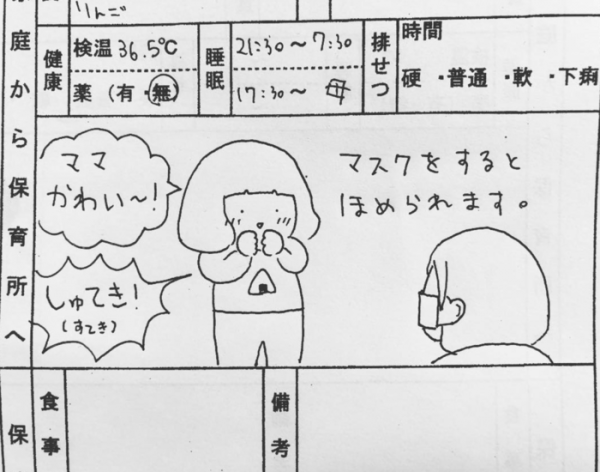 りんご
庭から保育所へ
健康
検温 36.5℃
薬 (有・無)
睡眠
21:30〜7:30
17:30〜 母
排せつ
時間
硬・普通・軟・下痢
ママ
かわい〜!
しゅてき!
(すてき)
マスクをすると
ほめられます。
保
食事
備考